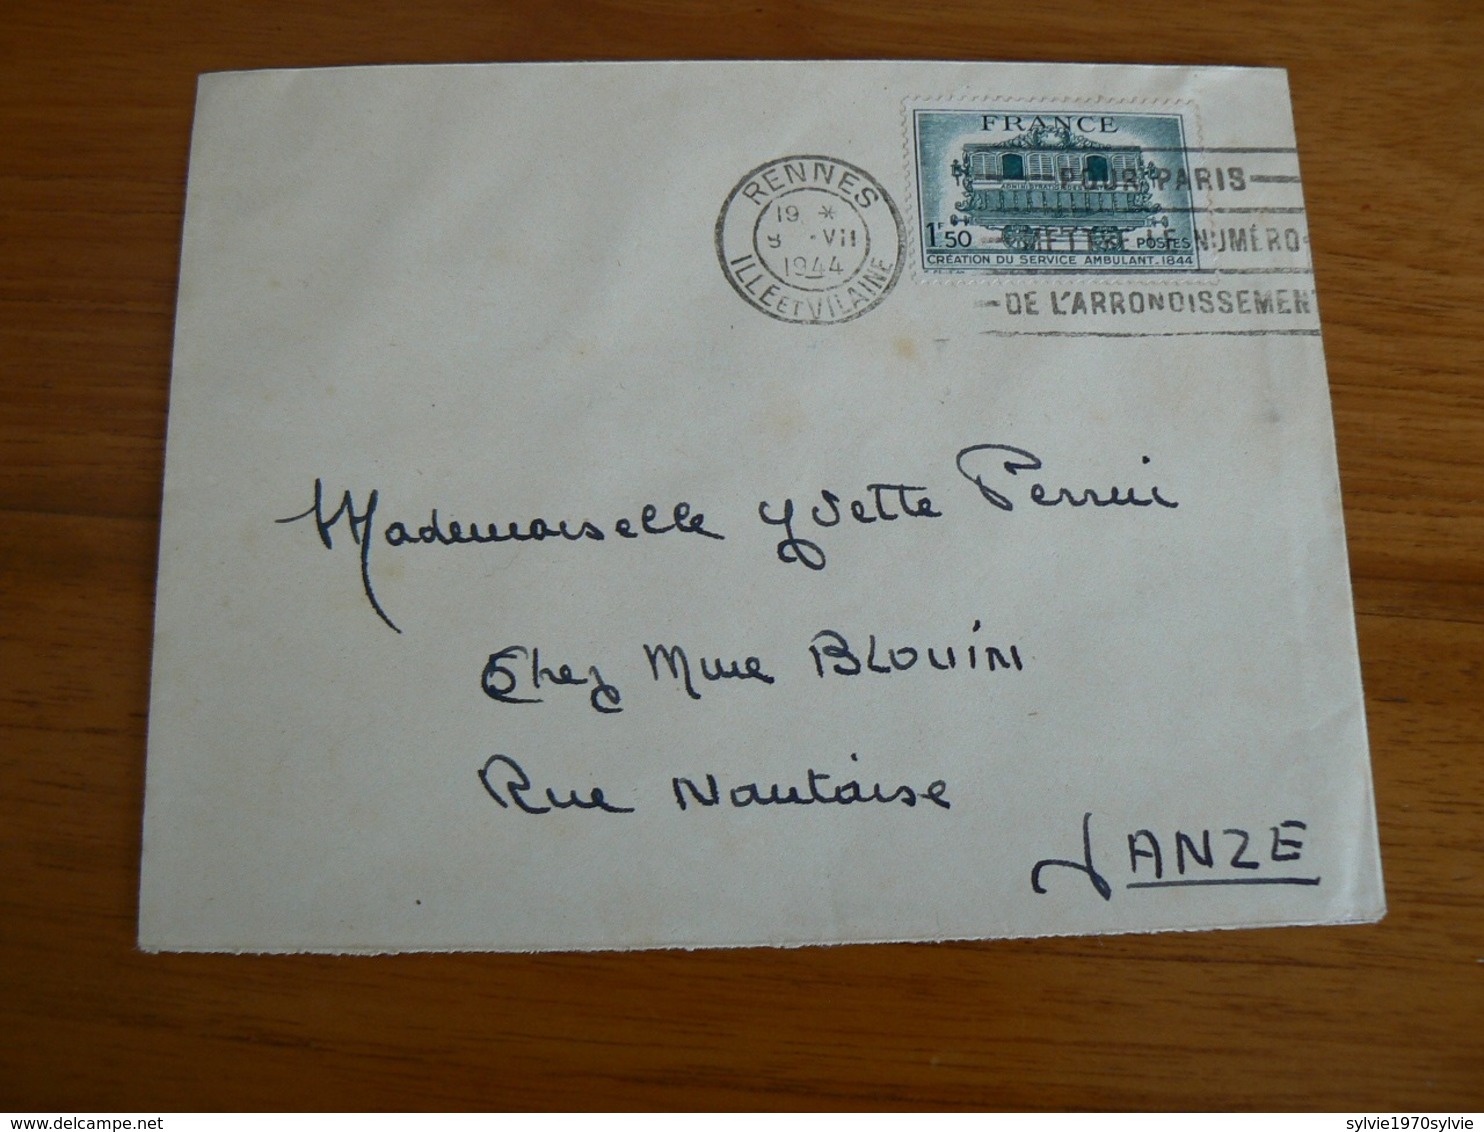 FRANCE
1F50
POSTES
CRÉATION DU SERVICE AMBULANT. 1844
RENNES
19 *
-VII
1944
ILLE ET VILAINE
POUR PARIS
METTRE LE NUMÉRO
DE L'ARRONDISSEMENT
Mademoiselle Yvette Perrin
Chez Mme BLOUIN
Rue Nantaise
JANZE
sylvie1970sylvie